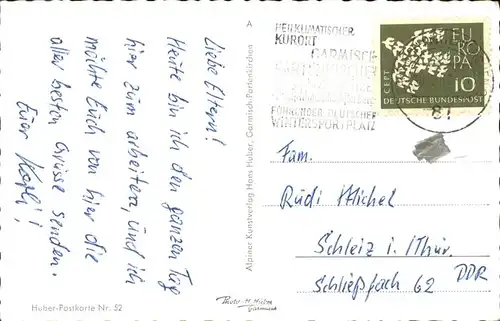 Liebe Eltern!
Heute bin ich den ganzen Tag
hier zum arbeiten, und ich
möchte Euch von hier die
allerbesten Grüsse senden.
Euer
Huber-Postkarte Nr. 52
A
Alpiner Kunstverlag Hans Huber, Garmisch-Partenkirchen
Photo H. Huber
HEILKLIMATISCHER
KURORT
GARMISCH
PARTENKIRCHEN
FÜHRENDER DEUTSCHER
WINTERSPORTPLATZ
EUROPA
CEPT
10
DEUTSCHE BUNDESPOST
Fam.
Rudi Michel
Schleiz i./Thür.
Schließfach 62 DDR